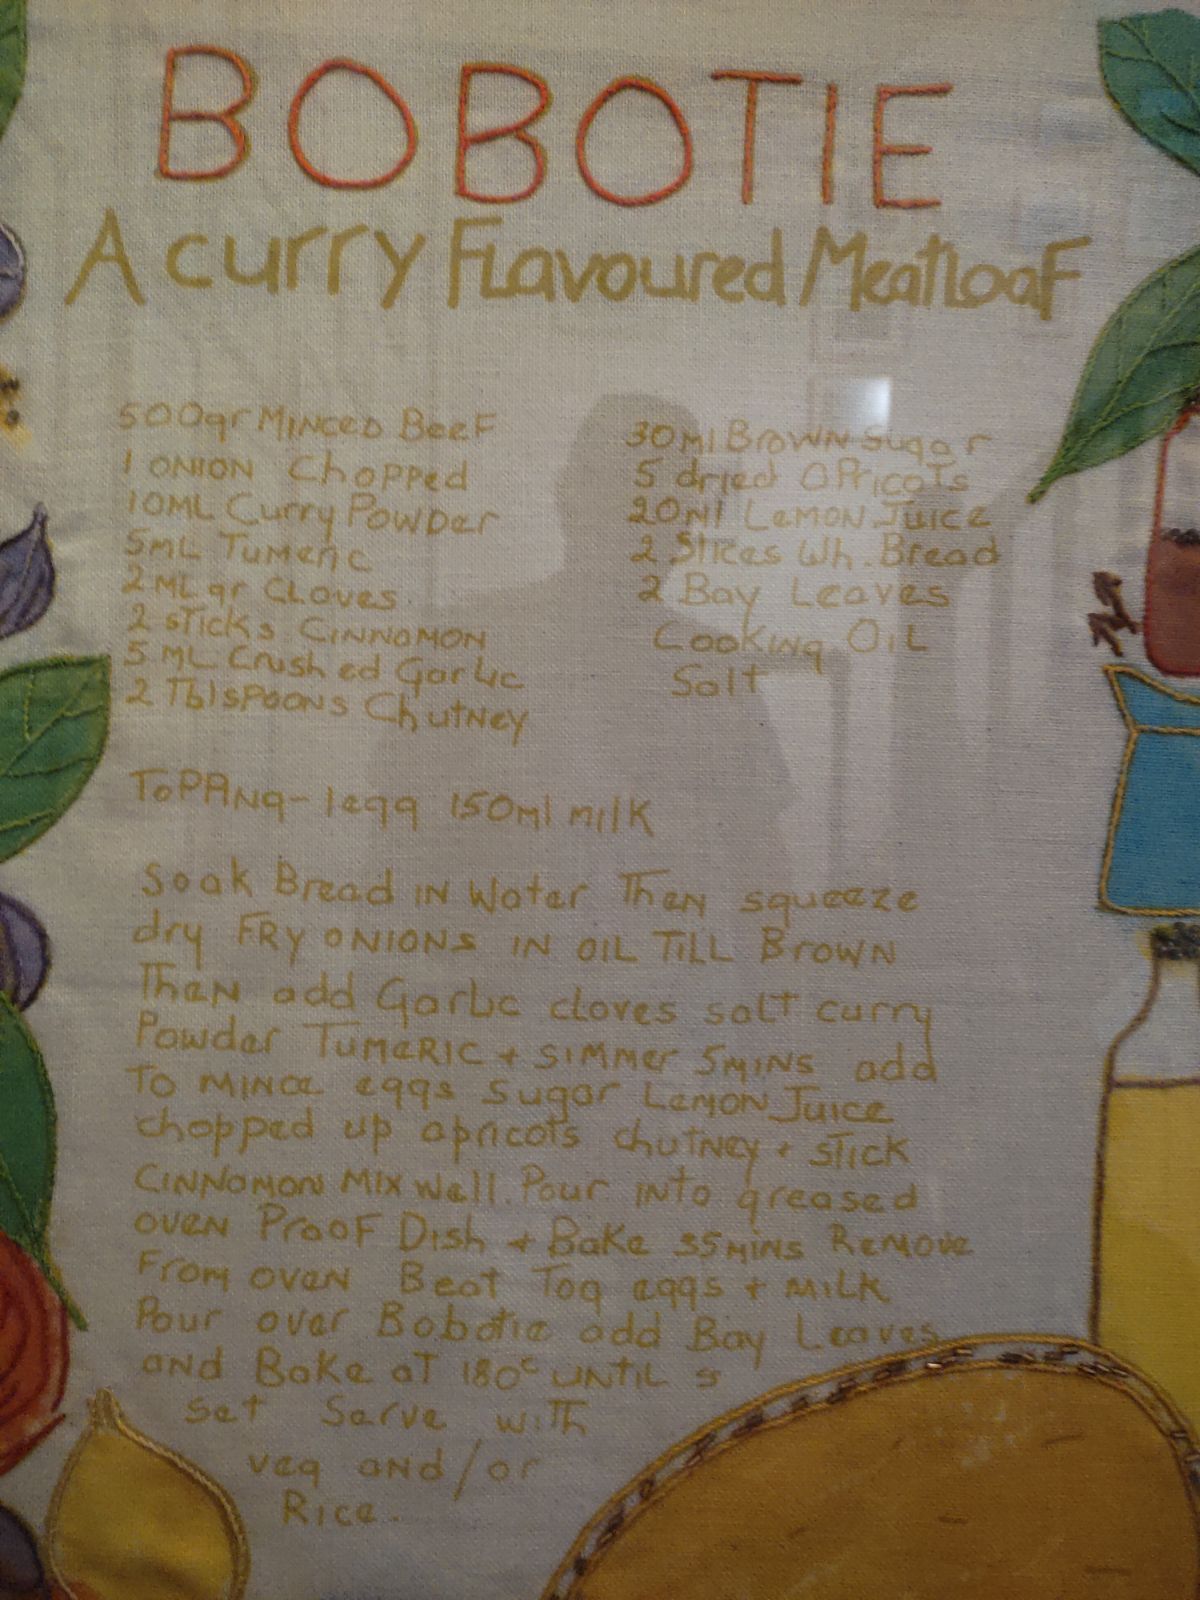 BOBOTIE
A curry Flavoured Meatloaf
500gr Minced Beef
1 onion Chopped
10ML Curry Powder
5ML Tumeric
2 ML gr Cloves
2 sticks Cinnamon
5 ML Crushed Garlic
2 Tblspoons Chutney
30ml Brown Sugar
5 dried Apricots
20ml Lemon Juice
2 Slices Wh. Bread
2 Bay Leaves
Cooking Oil
Salt
Topping - 1 egg 150ml milk
Soak Bread in Water Then squeeze
dry Fry onions in oil Till Brown
Then add Garlic cloves salt curry
Powder Tumeric + simmer 5mins add
To mince eggs sugar Lemon Juice
chopped up apricots chutney + stick
Cinnamon Mix well. Pour into greased
oven Proof Dish + Bake 35mins Remove
From oven Beat Tog eggs + milk
Pour over Bobotie add Bay Leaves
and Bake at 180°c until s
set Serve with
veg and/or
Rice.